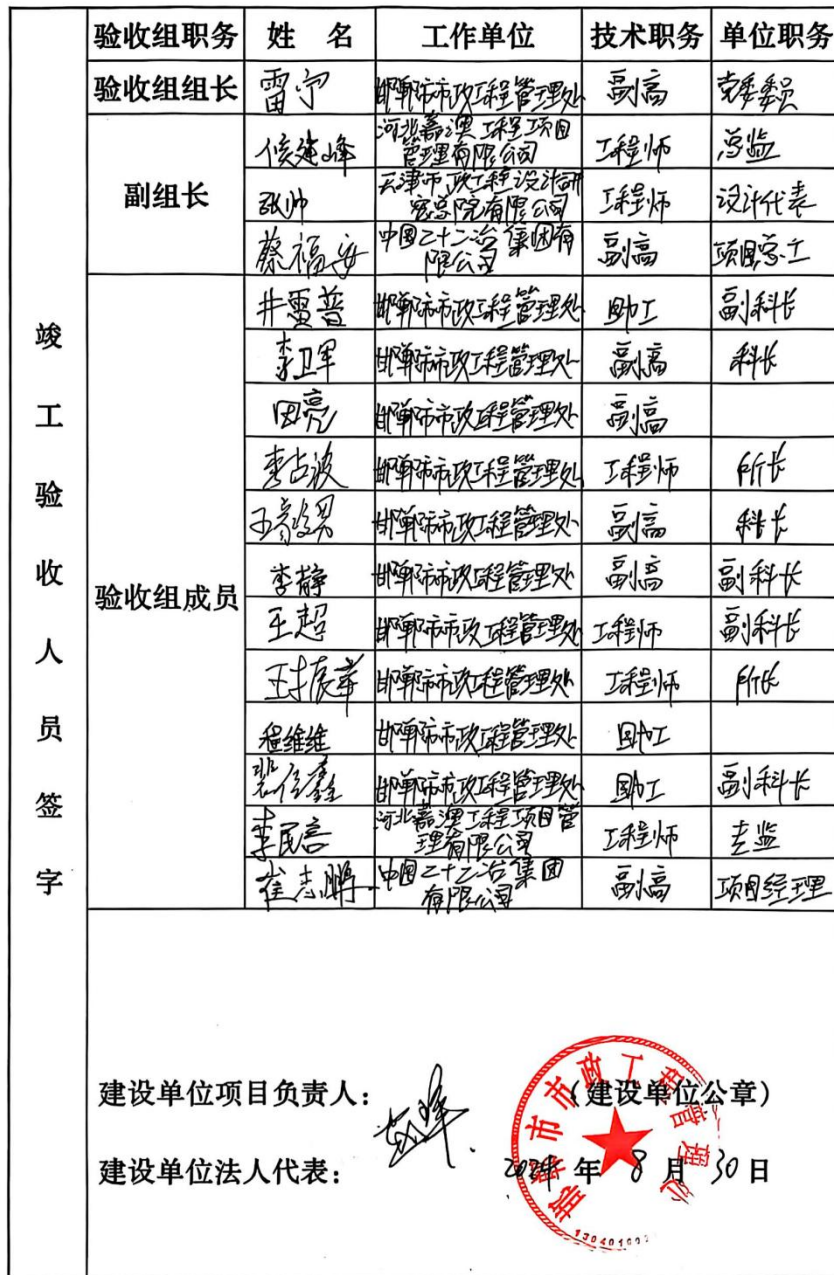 竣工验收人员签字
验收组职务 姓 名 工作单位 技术职务 单位职务
验收组组长 雷宁 邯郸市市政工程管理处 副高 党委委员
副组长
侯建峰 河北嘉澳工程项目
管理有限公司 工程师 总监
张帅 天津市政工程设计研
究总院有限公司 工程师 设计代表
蔡福安 中国二十二冶集团有
限公司 副高 项目总工
验收组成员
井雷普 邯郸市市政工程管理处 助工 副科长
李卫军 邯郸市市政工程管理处 副高 科长
田亮 邯郸市市政工程管理处 副高
李占波 邯郸市市政工程管理处 工程师 所长
邯郸市市政工程管理处 副高 科长
李静 邯郸市市政工程管理处 副高 副科长
王超 邯郸市市政工程管理处 工程师 副科长
王振华 邯郸市市政工程管理处 工程师 所长
程维维 邯郸市市政工程管理处 助工
邯郸市市政工程管理处 助工 副科长
河北嘉澳工程项目管
理有限公司 工程师 专监
崔志鹏 中国二十二冶集团
有限公司 副高 项目经理
建设单位项目负责人： （建设单位公章）
建设单位法人代表： 2024 年 8 月 30 日
邯郸市市政工程管理处